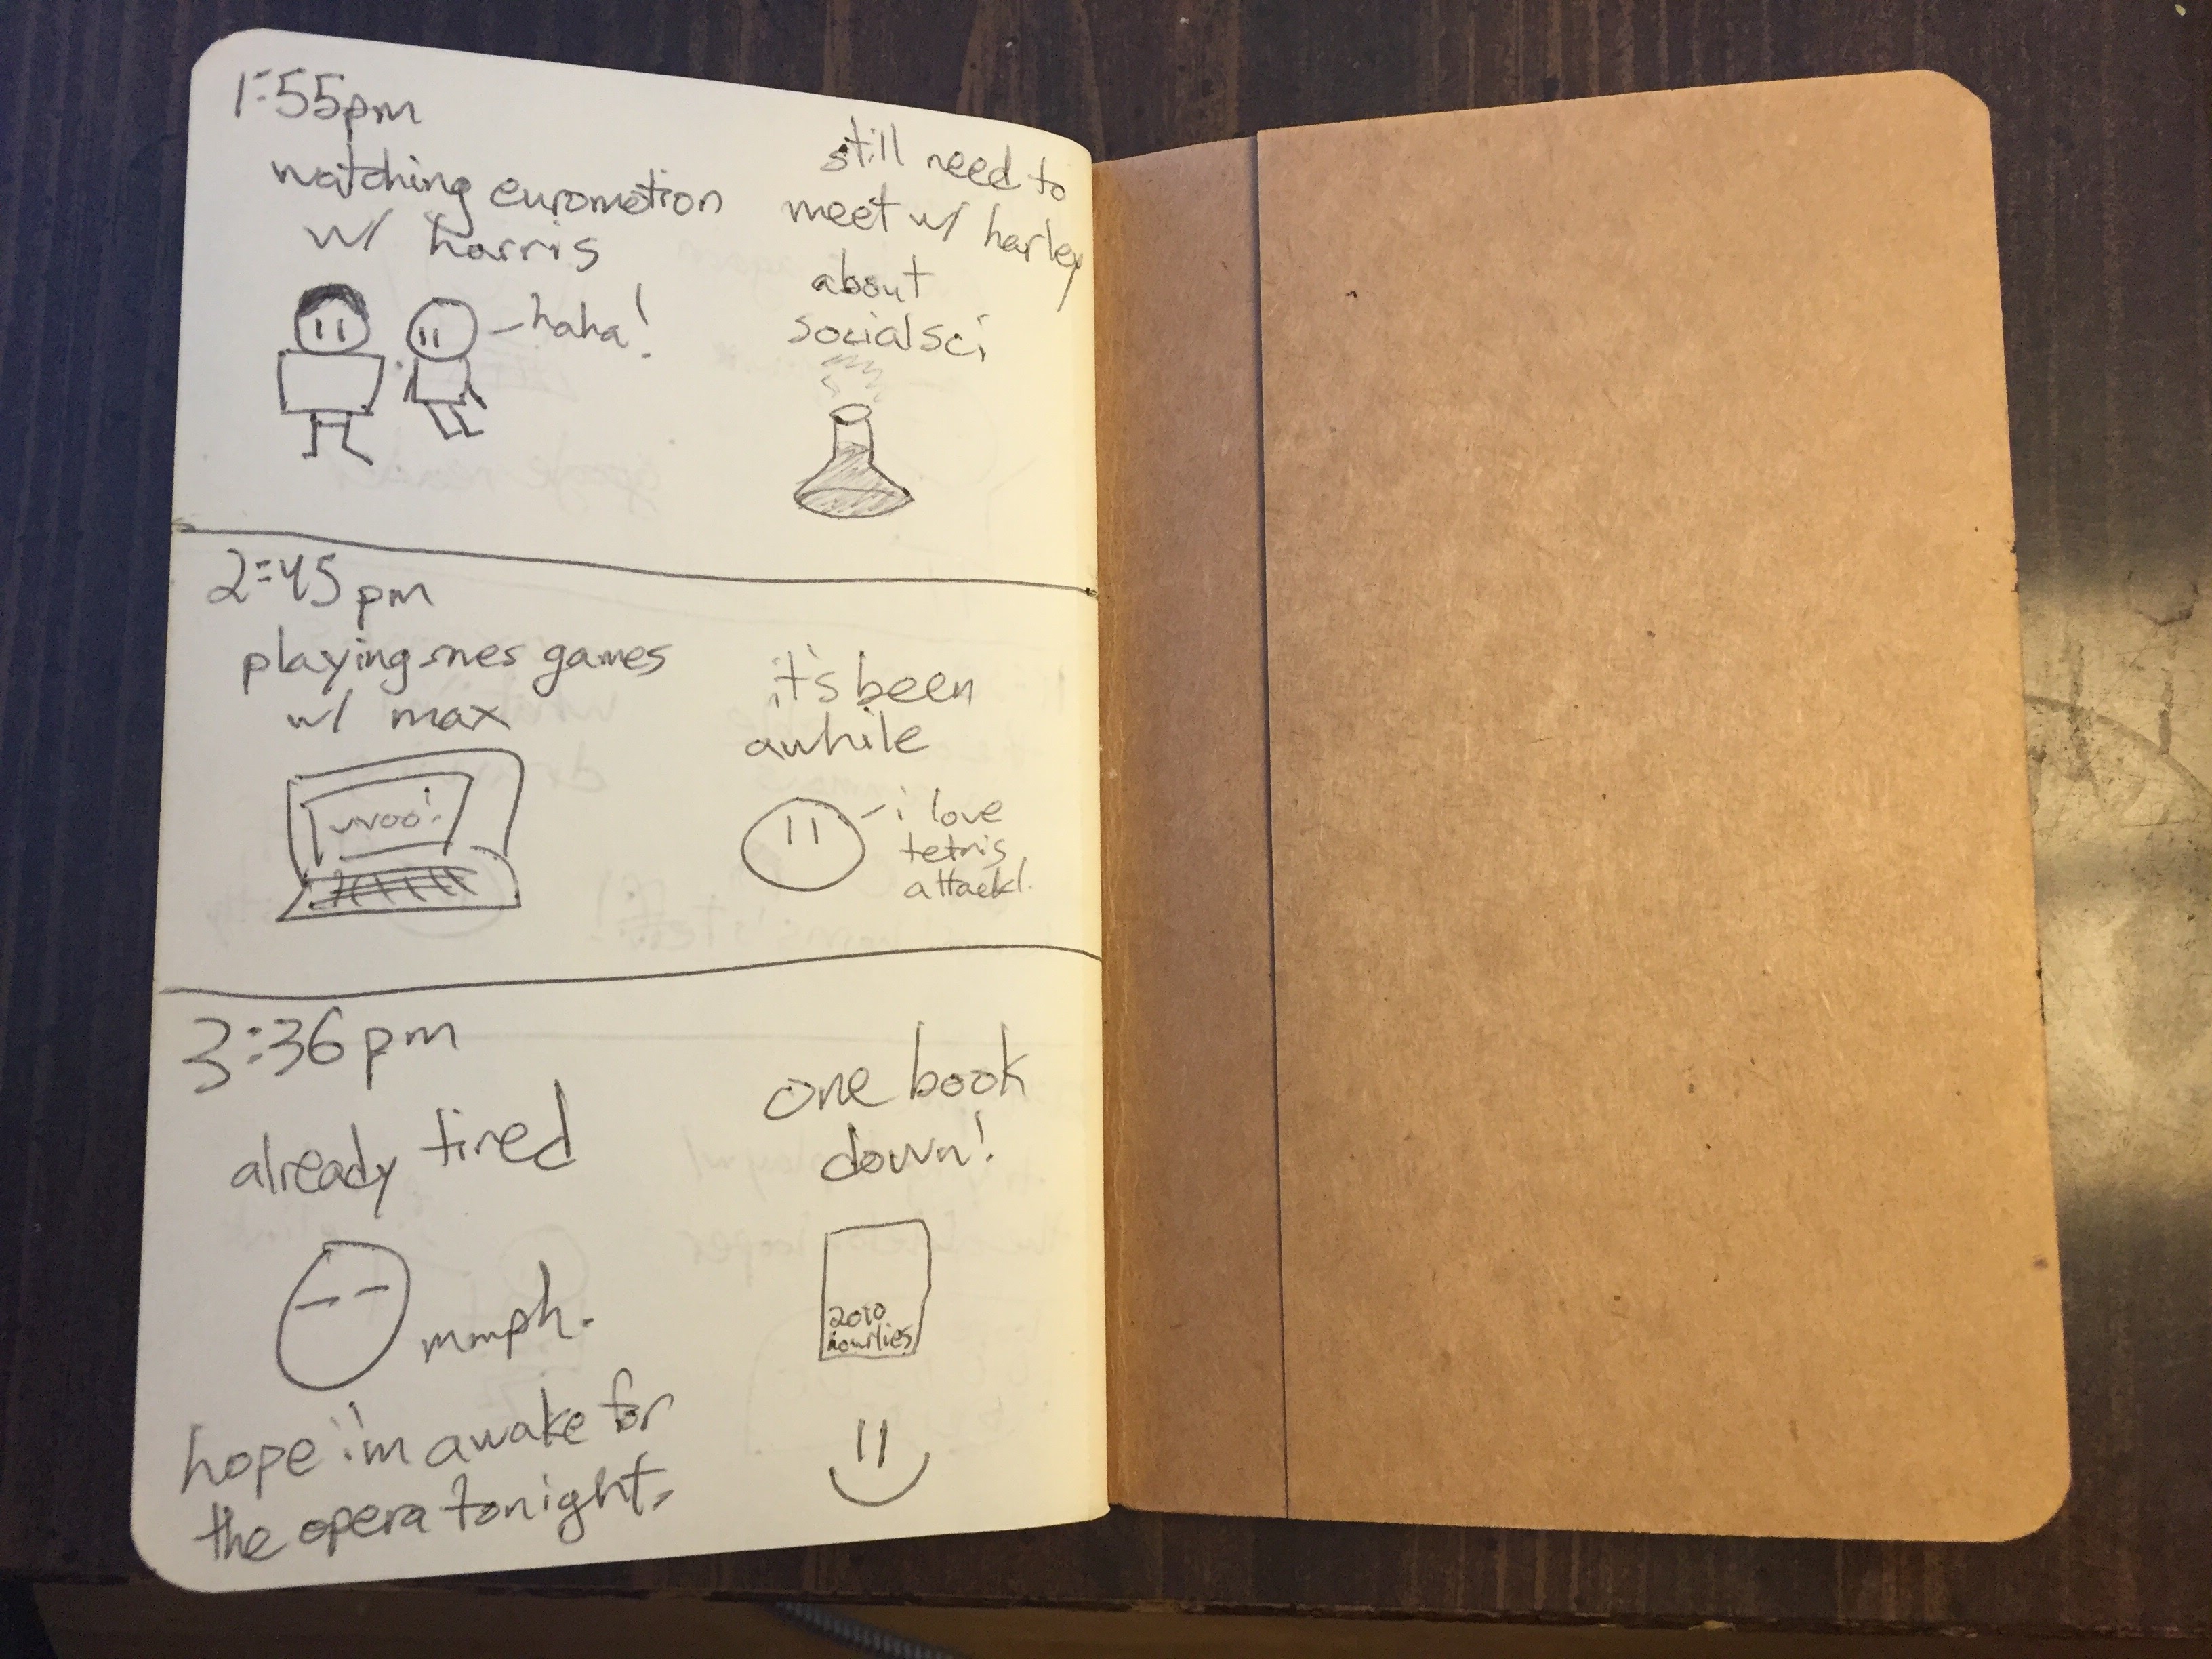 1:55pm
watching euromotion
w/ harris
haha!
still need to
meet w/ harley
about
social sci
2:45pm
playing snes games
w/ max
woo!
it's been
awhile
i love
tetris
attack!
3:36pm
already tired
mmph.
hope i'm awake for
the opera tonight.
one book
down!
2010
hourlies